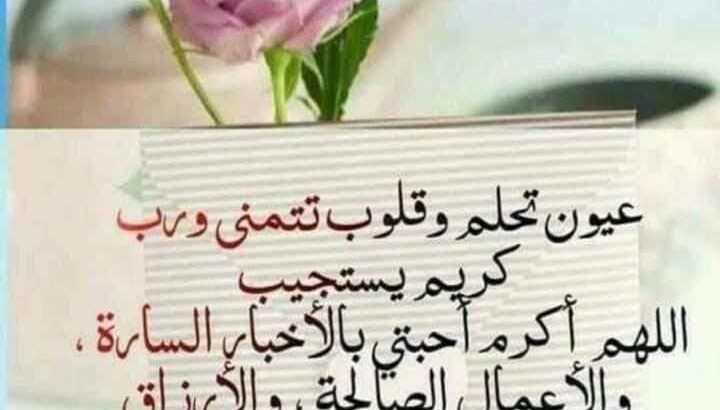 عيون تحلم وقلوب تتمنى ورب
كريم يستجيب
اللهم أكرم أحبتي بالأخبار السارة ،
والأعمال الصالحة ، والأرزاق